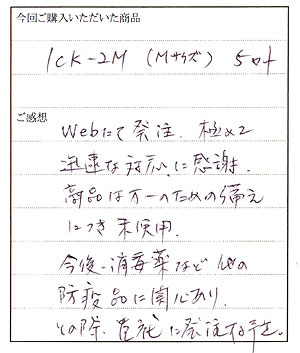 今回ご購入いただいた商品
ICK-2M (Mサイズ) 5セット
ご感想
Webにて発注. 極めて
迅速な対応に感謝.
商品は万一のための備え
につき未使用.
今後、消毒薬など他の
防疫品に関心あり.
その際、貴社に発注する予定。